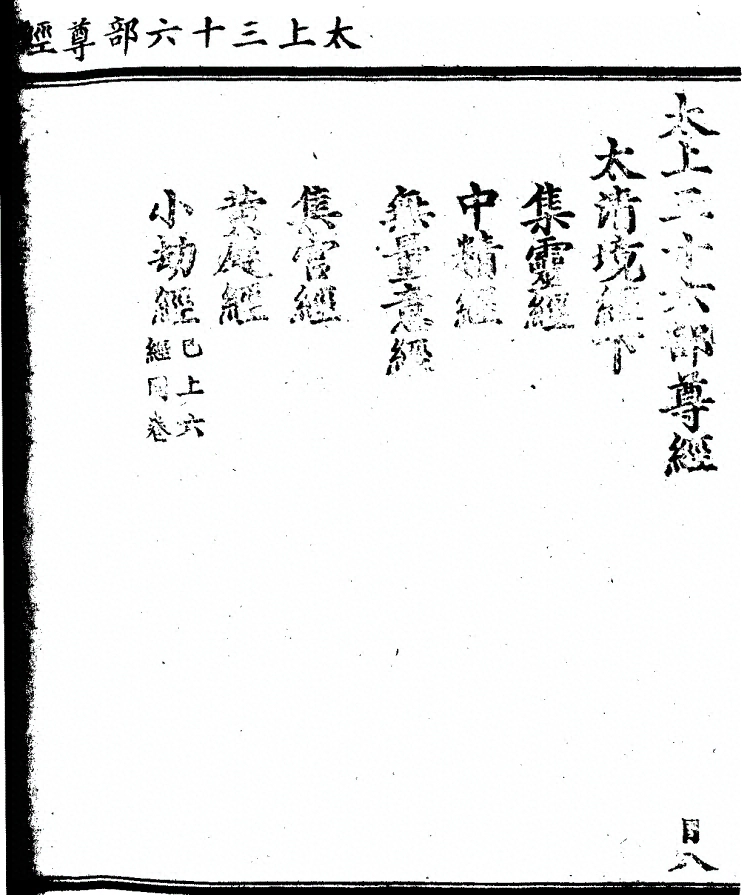 太上三十六部尊經
太上三十六部尊經
太清境經下
集靈經
中精經
無量意經
集宮經
黃庭經
小劫經已上六
經同卷
目八